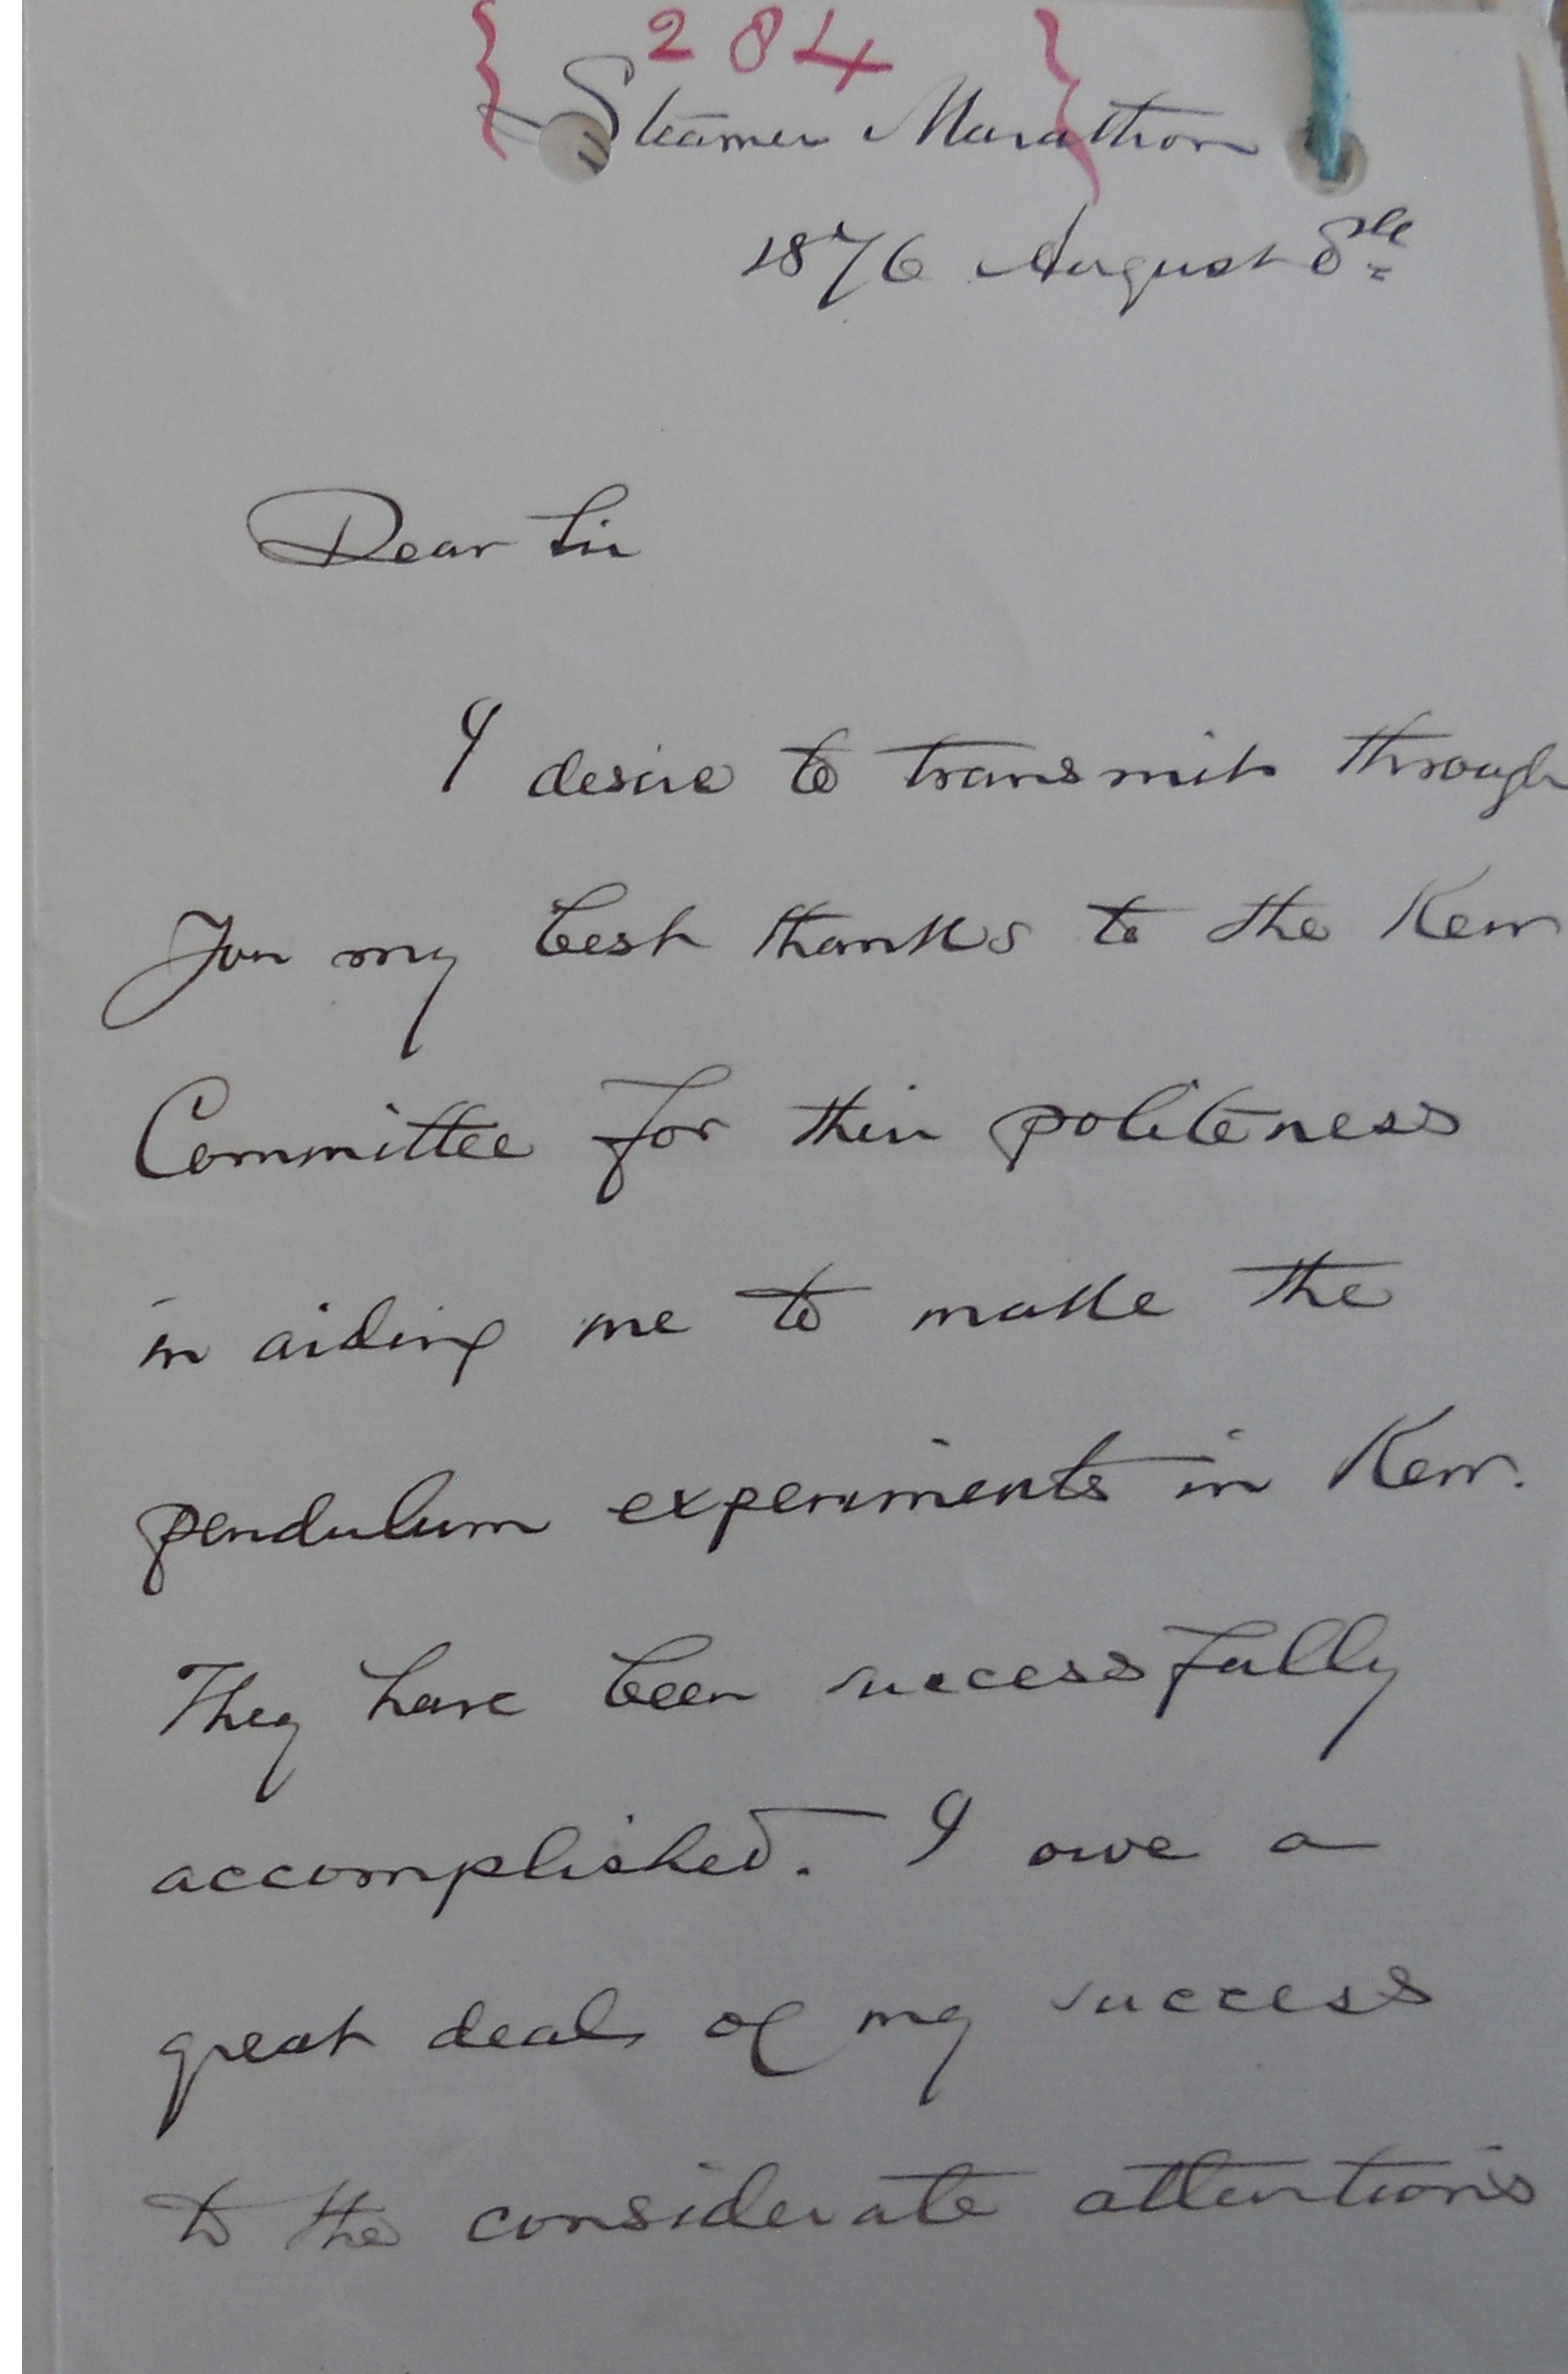 284
Steamer Marathon
1876 August 8th
Dear Sir
I desire to transmit through
you my best thanks to the Kew
Committee for their politeness
in aiding me to make the
pendulum experiments in Kew.
They have been successfully
accomplished. I owe a
great deal of my success
to the considerate attentions